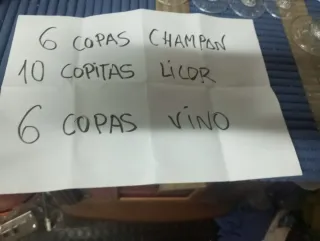 6 COPAS CHAMPAN
10 COPITAS LICOR
6 COPAS VINO